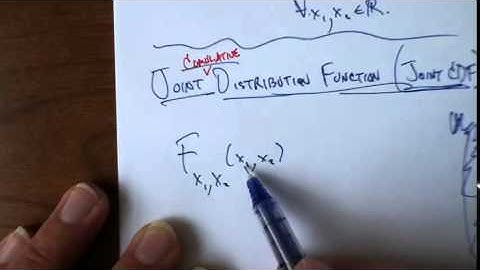 ∀x₁,x₂∈ℝ.
CUMULATIVE
JOINT DISTRIBUTION FUNCTION (JOINT CDF
F_{X₁,X₂}(x₁,x₂)